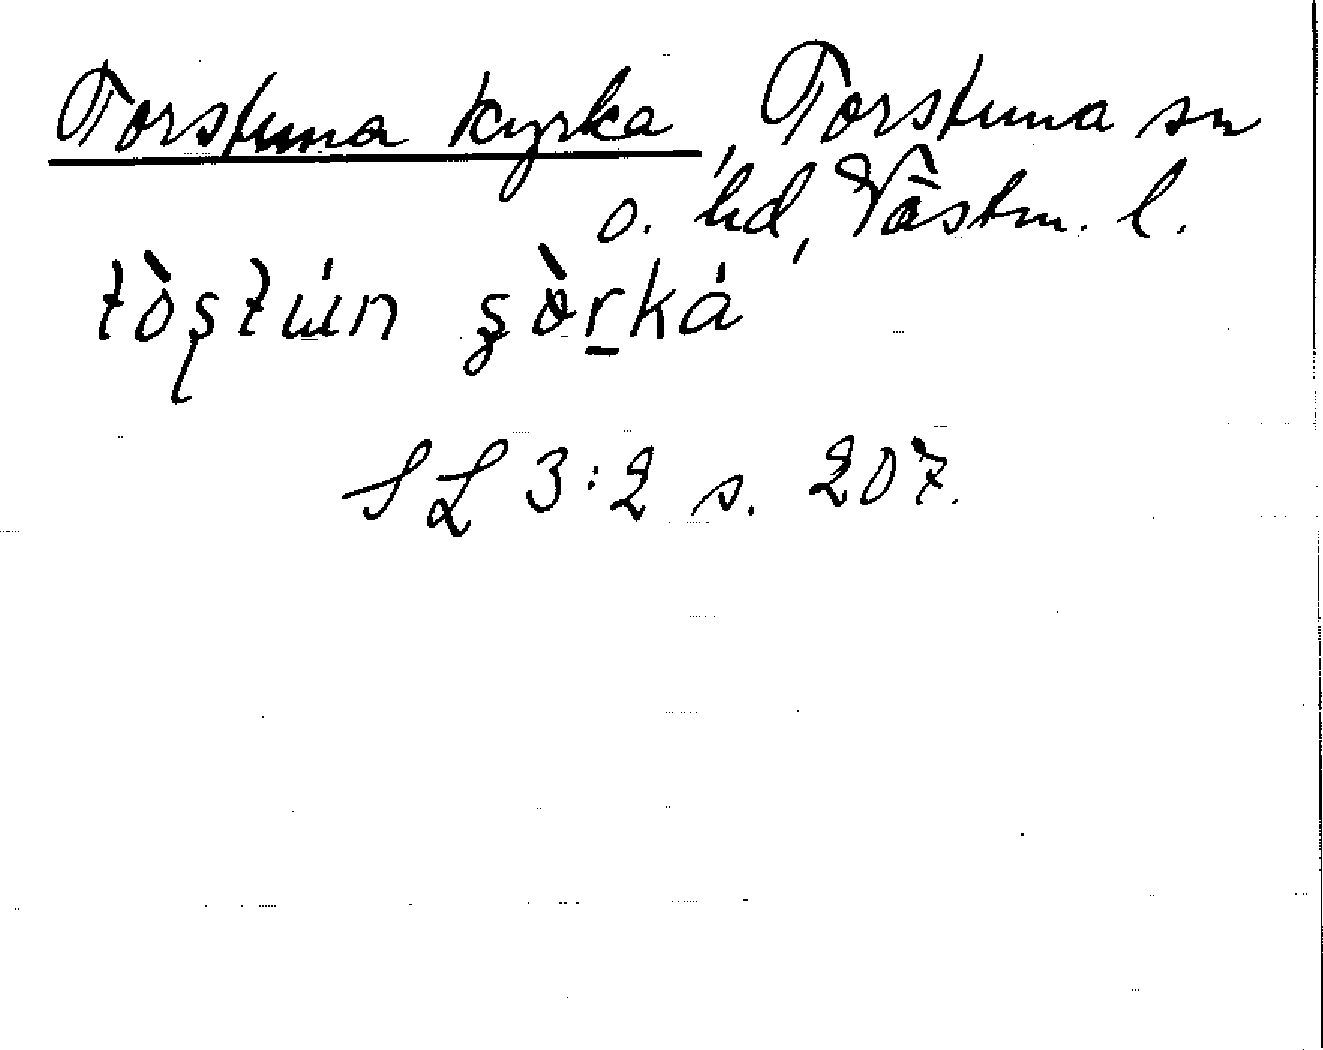 Torstuna kyrka, Torstuna sn
o. hd, Västm. l.
tòʂtún ʂòrká
SL 3:2 s. 207.